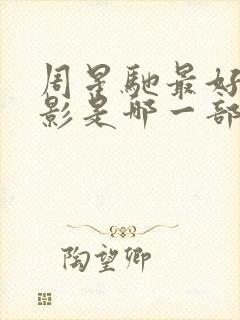 周星馳最好
影是哪一部
陶望卿